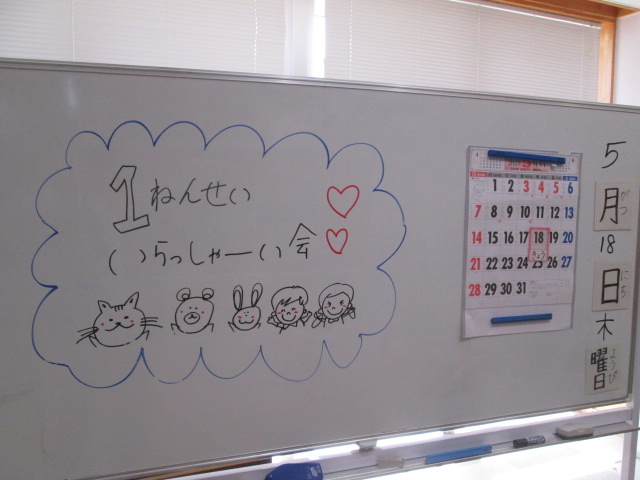 1ねんせい
いらっしゃーい会
5
月
がつ
18
日
にち
木
曜日
ようび
1 2 3 4 5 6
7 8 9 10 11 12 13
14 15 16 17 18 19 20
きょう
21 22 23 24 25 26 27
28 29 30 31